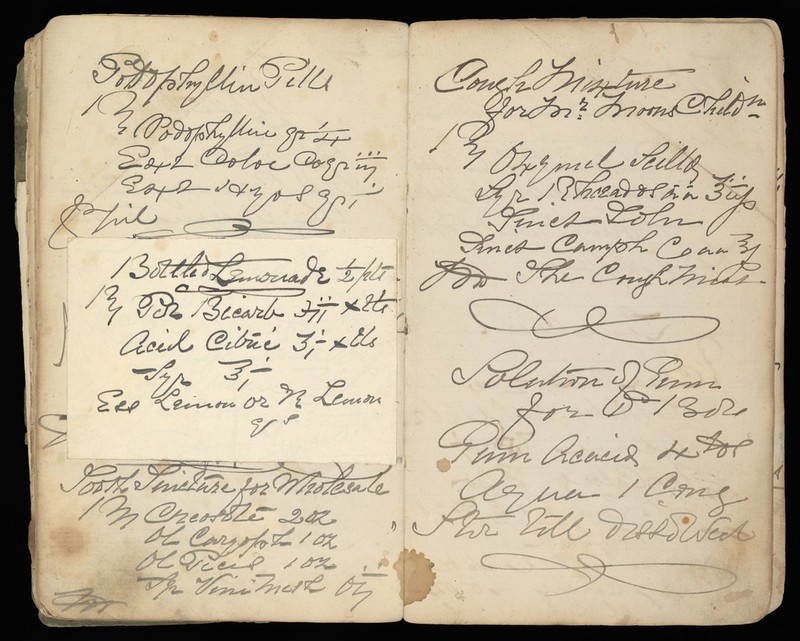 Podophyllin Pills
℞ Podophyllin gr
Ext Coloc Co gr iij
Ext Hyos gr i
Pil
Bottled Lemonade ½ pts
℞ Pot Bicarb
Acid Citric ʒi
Syr ℥i
Ess Lemon or Tr Lemon
qs
Tooth Tincture for Wholesale
℞ Creosote 2 oz
Ol Caryoph 1 oz
Ol 1 oz
Sp Vini Meth O
Cough Mixture
for Mr Moons Childn
℞ Oxymel Scillæ
Syr Rhoeados āā
Tinct Tolu
Tinct Camph Co āā
The Cough Mist
Solution of Gum
for
Gum Acacia 4
Aqua 1 Cong
Stir till dissolved